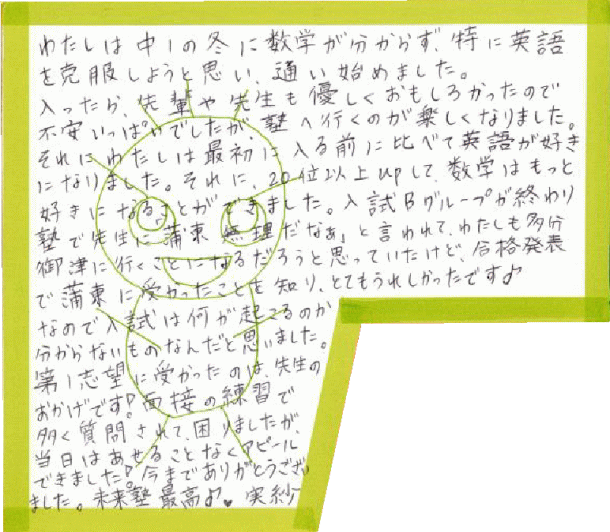 わたしは中1の冬に数学が分からず、特に英語
を克服しようと思い、通い始めました。
入ったら、先輩や先生も優しくおもしろかったので
不安いっぱいでしたが塾へ行くのが楽しくなりました。
それにわたしは最初に入る前に比べて英語が好き
になりました。それに、20位以上upして、数学はもっと
好きになることができました。入試Bグループが終わり
塾で先生に「蒲東無理だなぁ」と言われて、わたしも多分
御津に行くことになるだろうと思っていたけど、合格発表
で蒲東に受かったことを知り、とてもうれしかったです♪
なので入試は何が起こるのか
分からないものなんだと思いました。
第1志望に受かったのは、先生の
おかげです!面接の練習で
多く質問されて、困りましたが、
当日はあせることなくアピール
できました!今までありがとうござい
ました。未来塾最高♪♥ 実紗